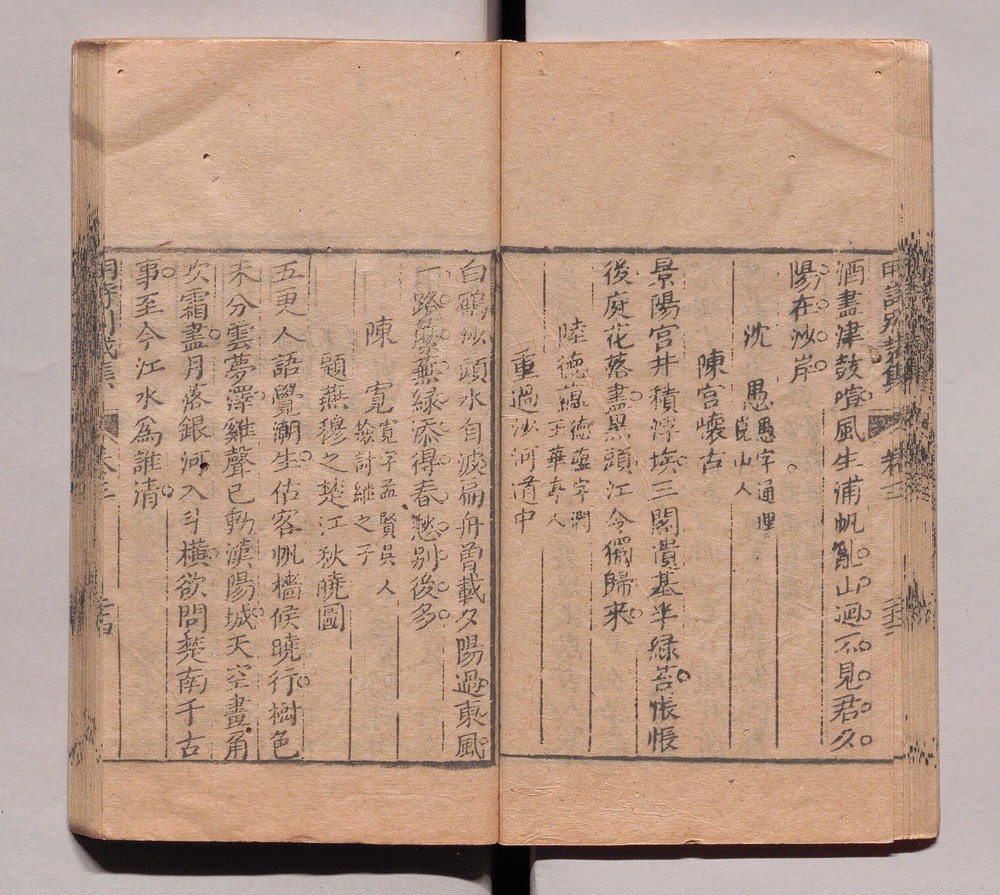 酒盡津鼓喧風生浦帆亂山迴不見君夕
陽在沙岸
沈愚愚字通理崑山人
陳宮懷古
景陽宮井積浮埃三閣遺基半綠苔悵悵
後庭花落盡黑頭江令獨歸來
陸德蘊德蘊字潤玉華亭人
重過沙河道中
白鷗沙頭水自波扁舟曾載夕陽過東風
一路蘼蕪綠添得春愁別後多
陳寬寬字孟賢吳人檢討繼之子
題燕穆之楚江秋曉圖
五更人語覺潮生估客帆檣候曉行樹色
未分雲夢澤雞聲已動漢陽城天空畫角
吹霜盡月落銀河入斗橫欲問楚南千古
事至今江水為誰清